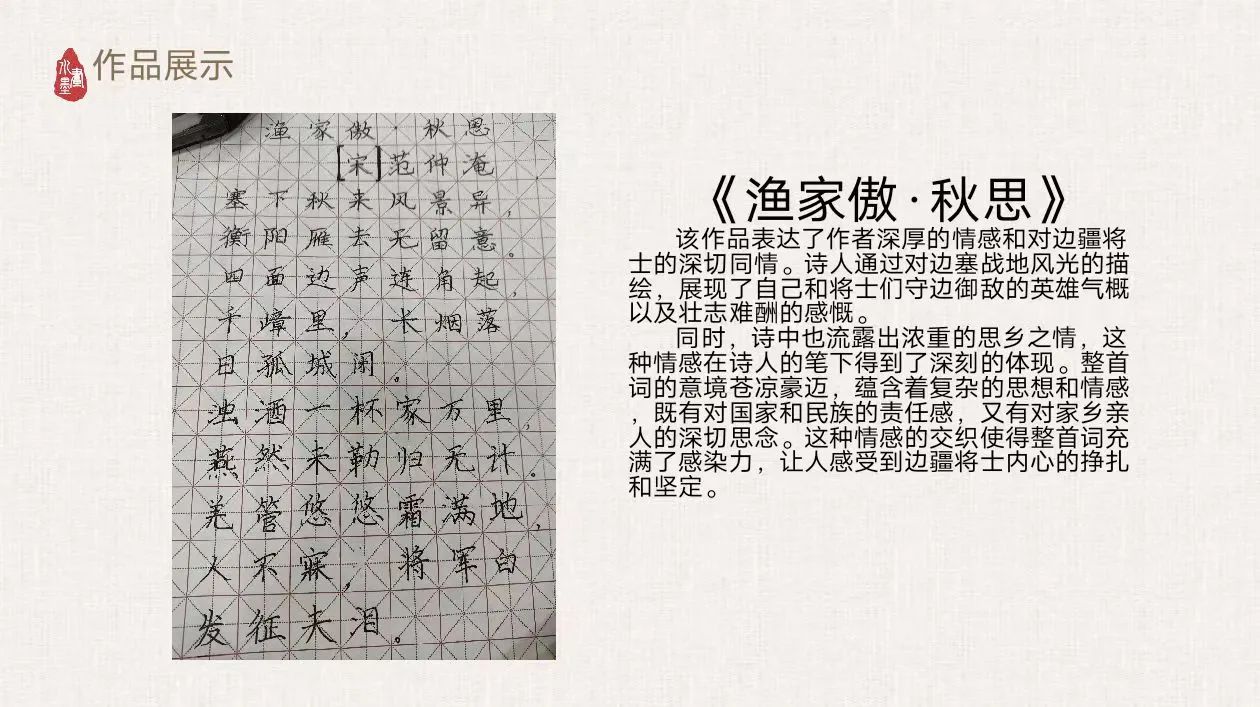 水墨画
作品展示
渔家傲·秋思
[宋]范仲淹
塞下秋来风景异，
衡阳雁去无留意。
四面边声连角起，
千嶂里，长烟落
日孤城闭。
浊酒一杯家万里，
燕然未勒归无计。
羌管悠悠霜满地，
人不寐，将军白
发征夫泪。
《渔家傲·秋思》
该作品表达了作者深厚的情感和对边疆将
士的深切同情。诗人通过对边塞战地风光的描
绘，展现了自己和将士们守边御敌的英雄气概
以及壮志难酬的感慨。
同时，诗中也流露出浓重的思乡之情，这
种情感在诗人的笔下得到了深刻的体现。整首
词的意境苍凉豪迈，蕴含着复杂的思想和情感
，既有对国家和民族的责任感，又有对家乡亲
人的深切思念。这种情感的交织使得整首词充
满了感染力，让人感受到边疆将士内心的挣扎
和坚定。